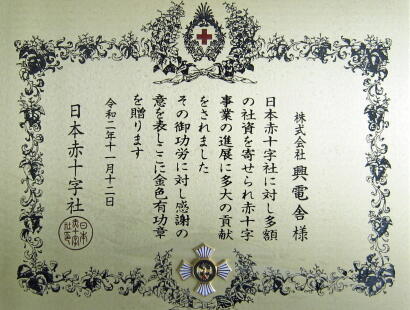 株式会社 興電舎 様
日本赤十字社に対し多額
の社資を寄せられ赤十字
事業の進展に多大の貢献
をされました
その御功労に対し感謝の
意を表しここに金色有功章
を贈ります
令和二年十一月十二日
日本赤十字社